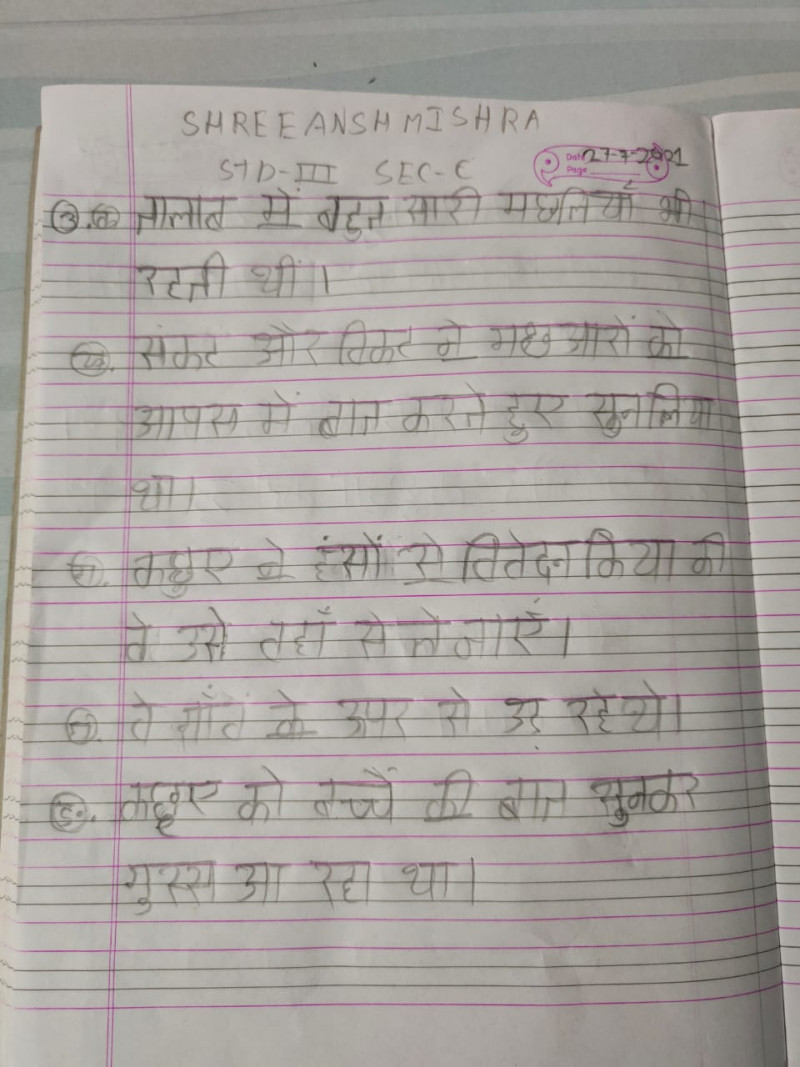 SHREEANSH MISHRA
STD-III SEC-C
Date 27-7-2001
Page
3.क तालाब में बहुत सारी मछलियाँ भी
रहती थीं।
ख. संकट और विकट ने मछुआरों को
आपस में बात करते हुए सुन लिया
था।
ग. कछुए ने हंसों से निवेदन किया की
वे उसे वहाँ से ले जाएँ।
घ. वे गाँव के ऊपर से उड़ रहे थे।
ङ. कछुए को बच्चें की बात सुनकर
गुस्स आ रहा था।